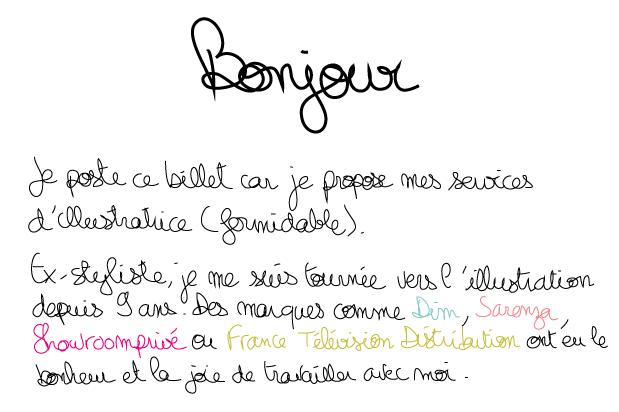 Bonjour
Je poste ce billet car je propose mes services
d'illustratrice (formidable).
Ex-styliste, je me suis tournée vers l'illustration
depuis 9 ans. Des marques comme Dim, Sarenza,
Showroomprivé ou France Télévision Distribution ont eu le
bonheur et la joie de travailler avec moi.